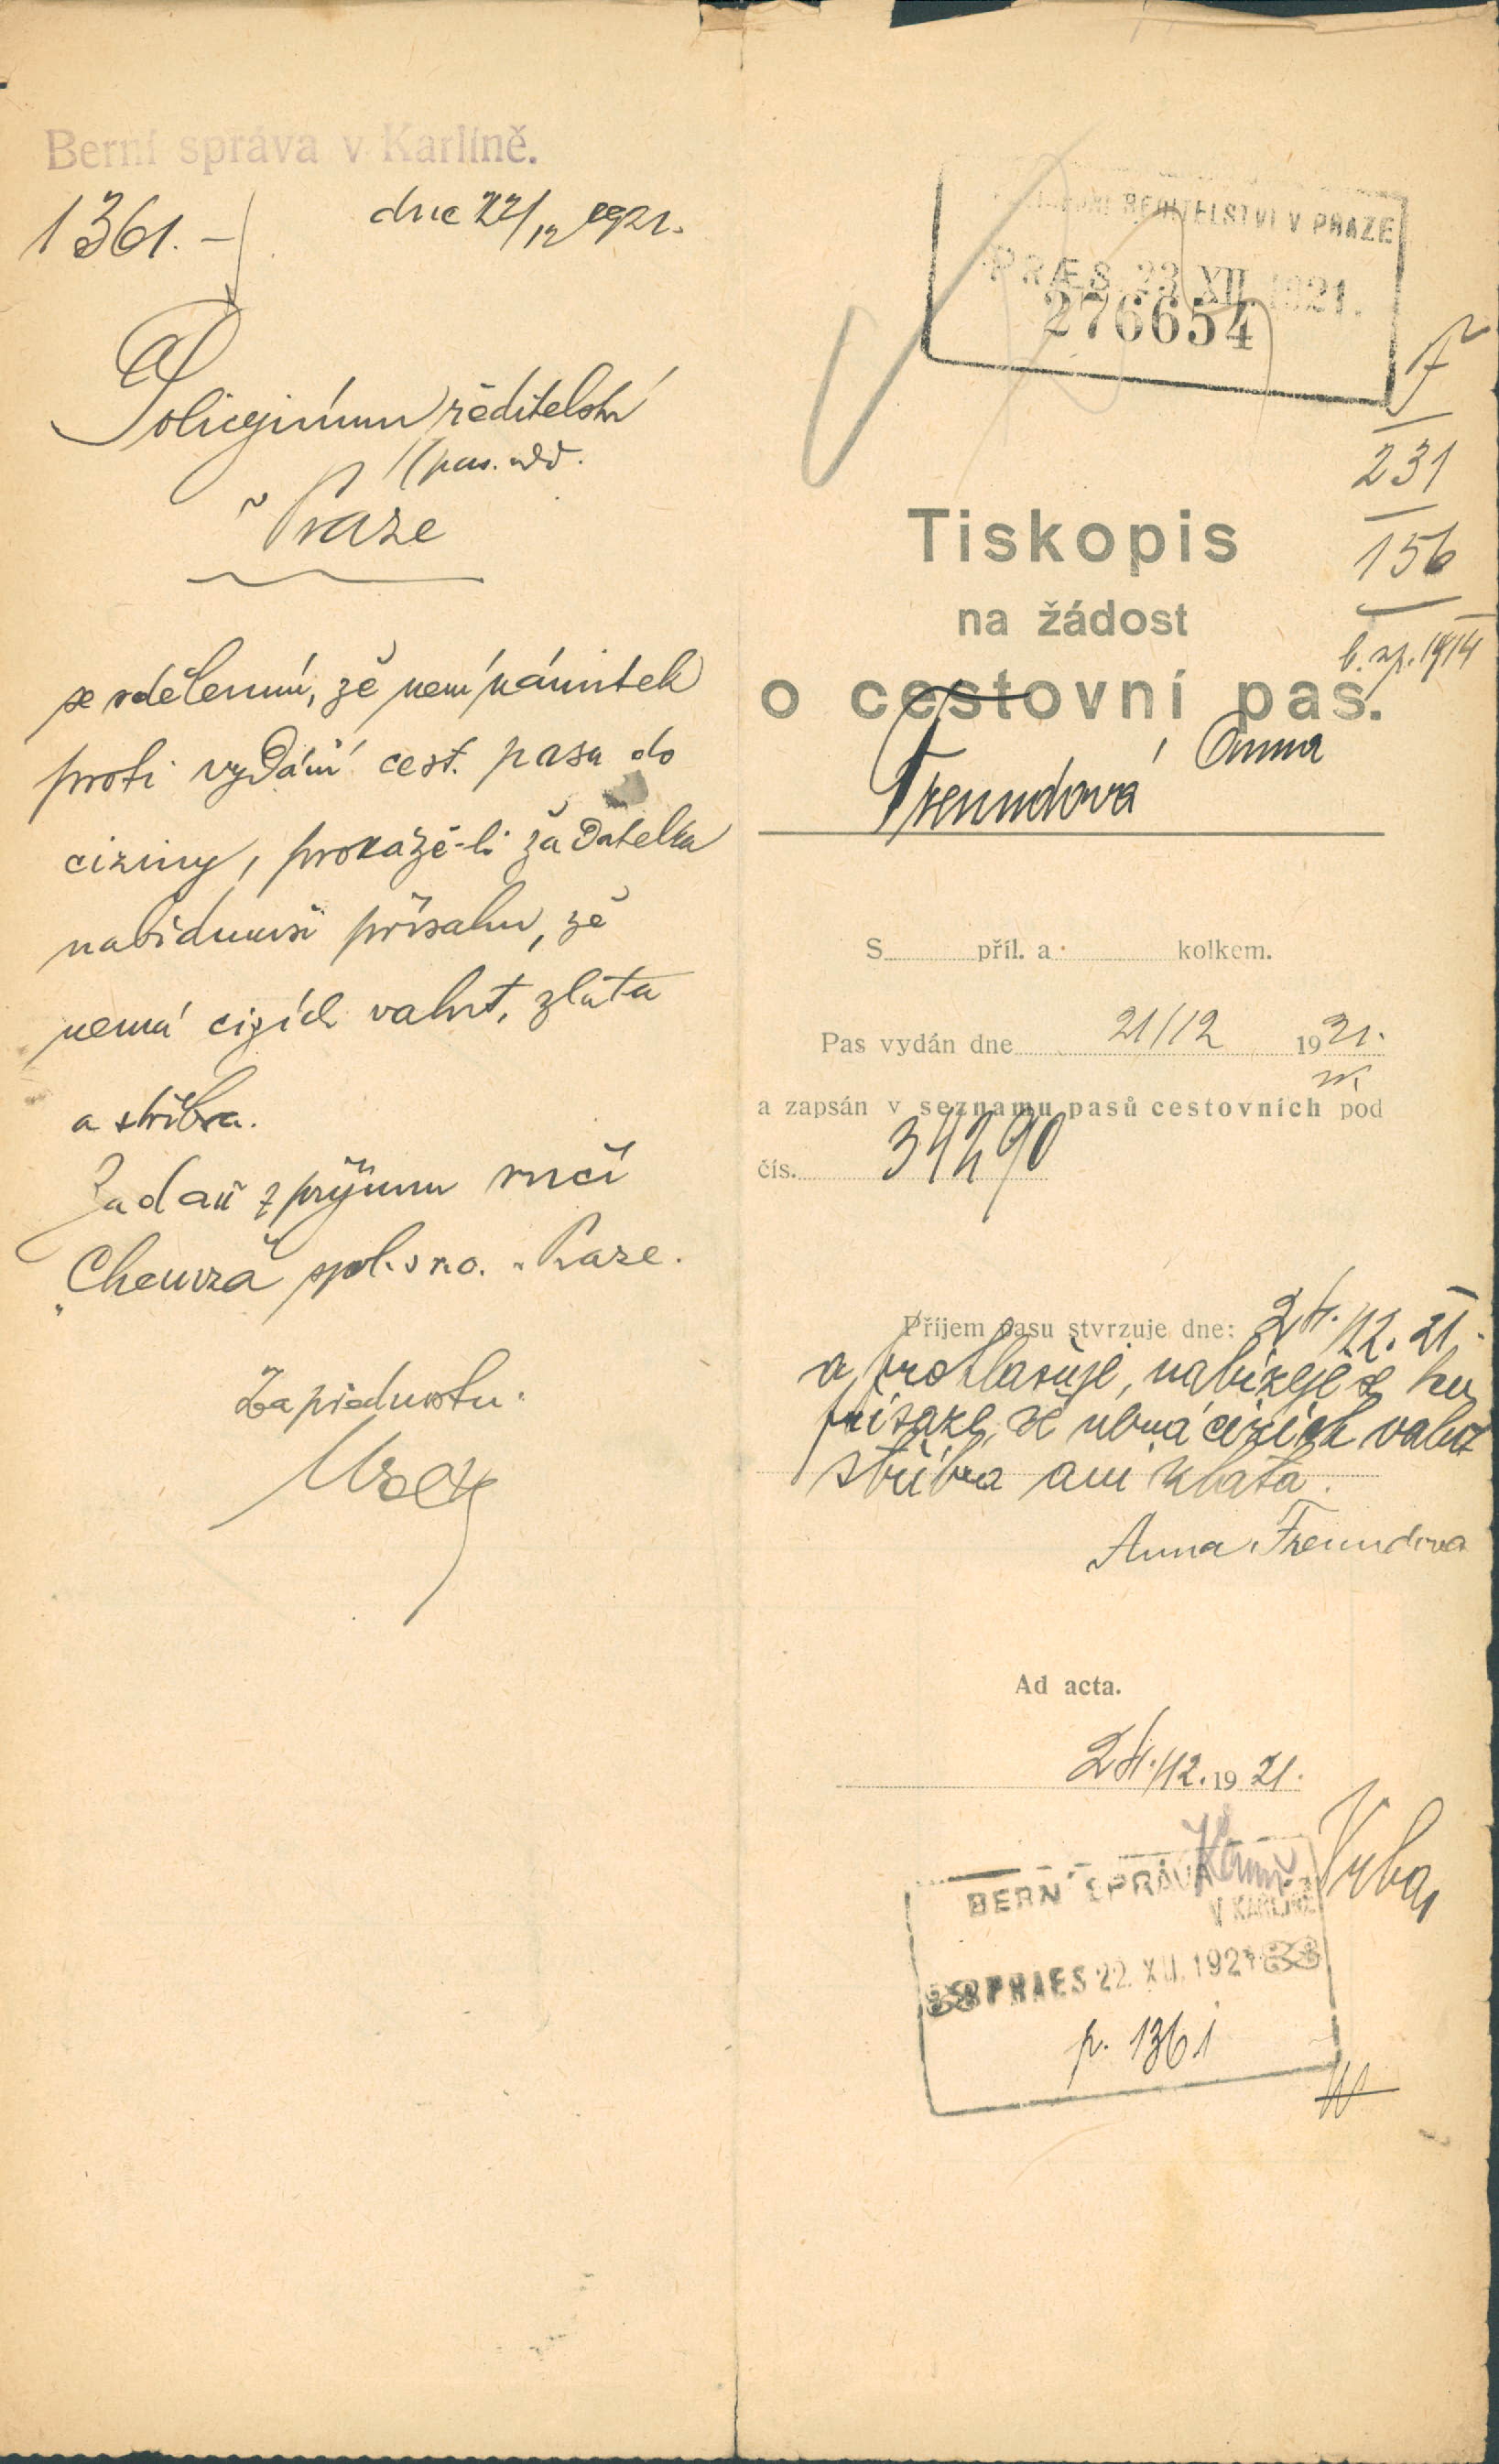 Berní správa v Karlíně.
1361.- dne 22/12 1921.
Policejnímu ředitelství
(pas. odd.
v Praze
se sdělením, že není námitek
proti vydání cest. pasu do
ciziny, prokáže-li žadatelka
nabídnuvši přísahu, že
nemá cizích valut, zlata
a stříbra.
Za daň z příjmu ručí
"Chemza spol. s r.o. v Praze.
Za přednostu:
POLICEJNÍ ŘEDITELSTVÍ V PRAZE
PRÆS. 23 XII 1921.
276654
F
231
156
Tiskopis
na žádost
o cestovní pas.
Freundová Anna
S příl. a kolkem.
Pas vydán dne 21/12 1921.
a zapsán v seznamu pasů cestovních pod
čís. 34290
Příjem pasu stvrzuje dne: 24./12. 21.
a prohlašuje, nabízejíc se ku
přísaze, že nemá cizích valut
stříbra ani zlata.
Anna Freundova
Ad acta.
24./12. 1921.
Vrba
BERNÍ SPRÁVA
V KARLÍNĚ
PRAES 22. XII. 1921
p. 1361